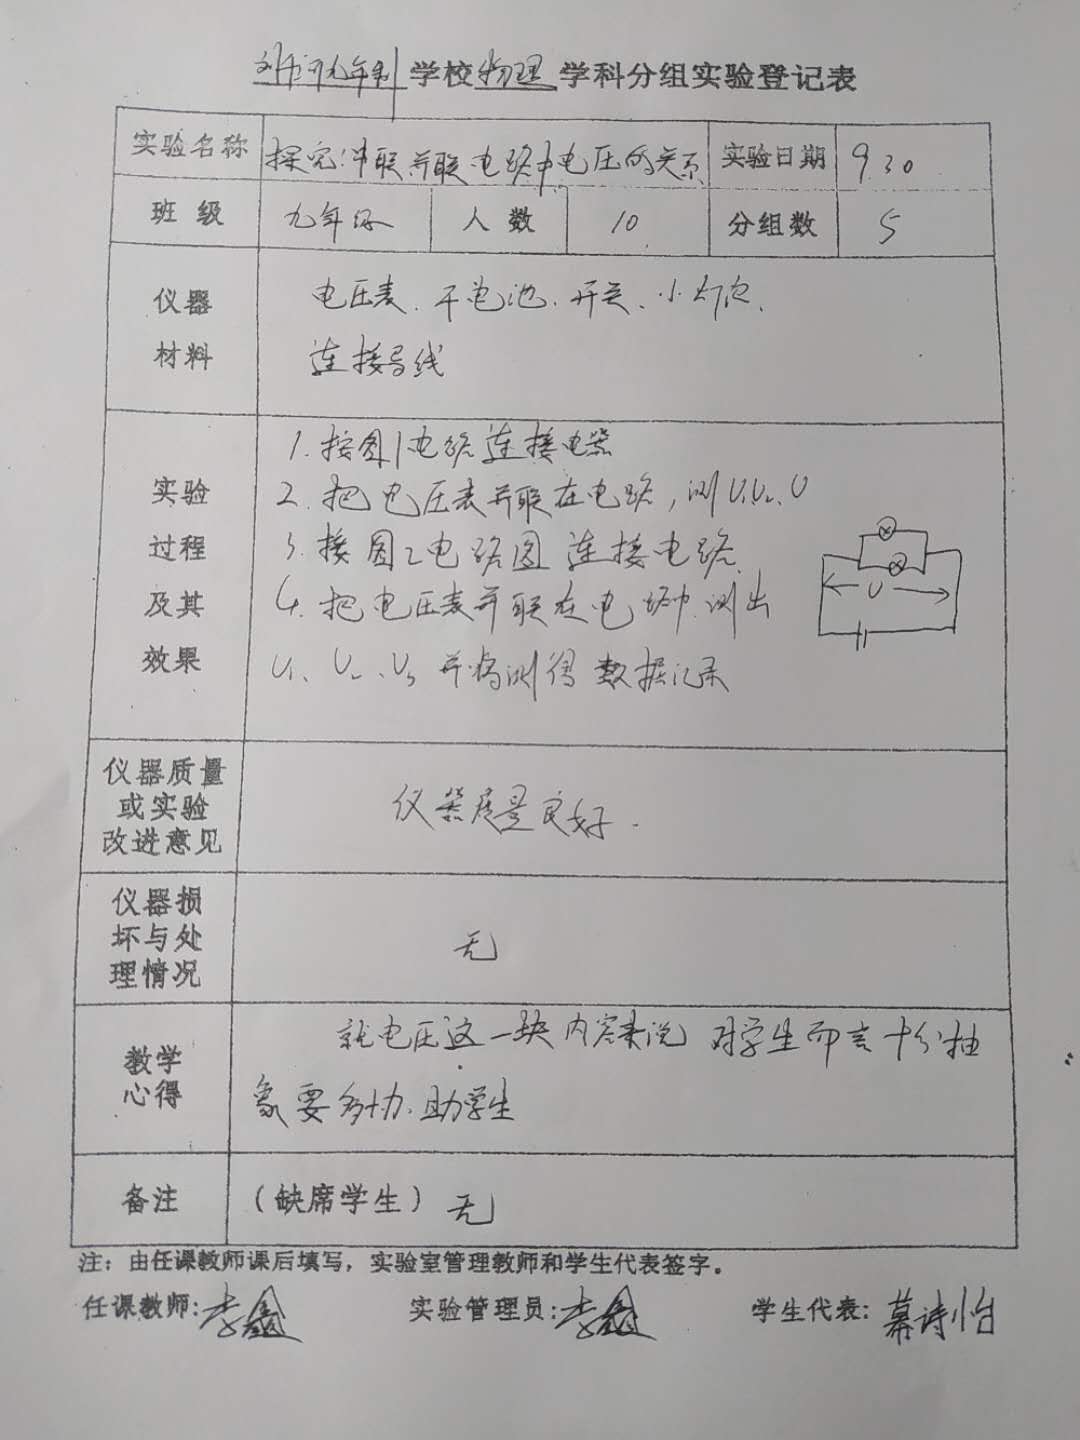 九年制学校物理学科分组实验登记表
实验名称 探究串联并联电路中电压的关系 实验日期 9.30
班级 九年级 人数 10 分组数 5
仪器 电压表、干电池、开关、小灯泡、
材料 连接导线
1.按图1电路连接电器
实验 2.把电压表并联在电路,测U1U2、U
过程 3.按图2电路图连接电路
及其 4.把电压表并联在电路中.测出
效果 U1、U2、U3并将测得数据记录
U
仪器质量
或实验 仪器质量良好.
改进意见
仪器损
坏与处 无
理情况
教学 就电压这一块内容来说 对学生而言十分抽
心得 象要多协助学生
备注 (缺席学生) 无
注:由任课教师课后填写,实验室管理教师和学生代表签字。
任课教师:李鑫 实验管理员:李鑫 学生代表:慕诗怡